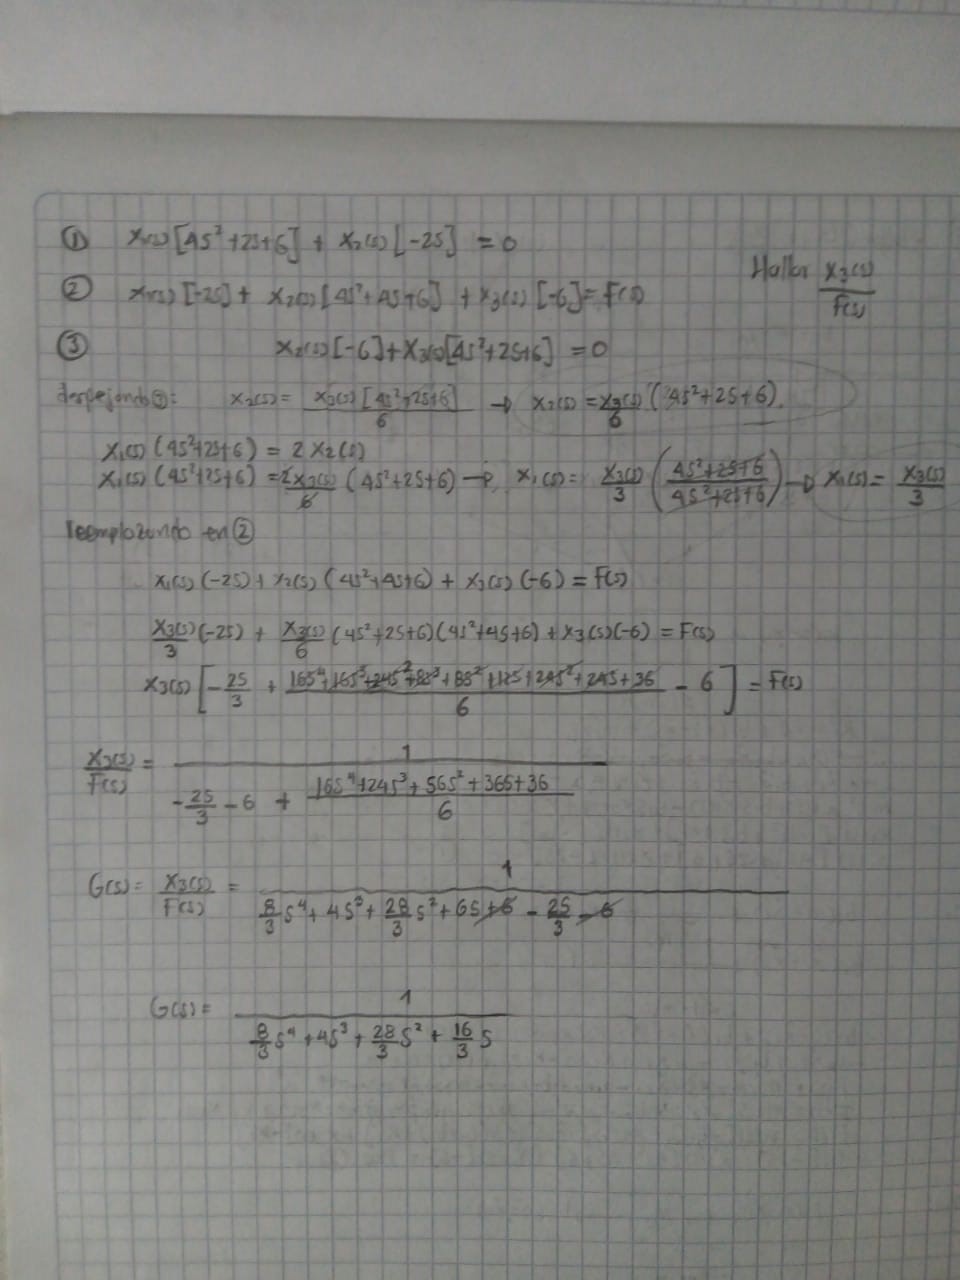 ① X₁(s)[4S²+2S+6] + X₂(s)[-2S] = 0
Hallar X₃(s)/F(s)
② X₁(s)[-2S] + X₂(s)[4S²+4S+6] + X₃(s)[-6] = F(s)
③ X₂(s)[-6] + X₃(s)[4S²+2S+6] = 0
despejando ③: X₂(s) = X₃(s)[4S²+2S+6]/6 → X₂(s) = X₃(s)/6 (4S²+2S+6)
X₁(s)(4S²+2S+6) = 2X₂(s)
X₁(s)(4S²+2S+6) = 2X₃(s)/6 (4S²+2S+6) → X₁(s) = X₃(s)/3 (4S²+2S+6/4S²+2S+6) → X₁(s) = X₃(s)/3
reemplazando en ②
X₁(s)(-2S) + X₂(s)(4S²+4S+6) + X₃(s)(-6) = F(s)
X₃(s)/3 (-2S) + X₃(s)/6 (4S²+2S+6)(4S²+4S+6) + X₃(s)(-6) = F(s)
X₃(s)[-2S/3 + 16S⁴+16S³+24S²+8S³+8S²+12S+24S²+24S+36/6 - 6] = F(s)
X₃(s)/F(s) = 1/(-2S/3 - 6 + 16S⁴+24S³+56S²+36S+36/6)
G(s) = X₃(s)/F(s) = 1/(8/3 S⁴ + 4S³ + 28/3 S² + 6S + 6 - 2S/3 - 6)
G(s) = 1/(8/3 S⁴ + 4S³ + 28/3 S² + 16/3 S)